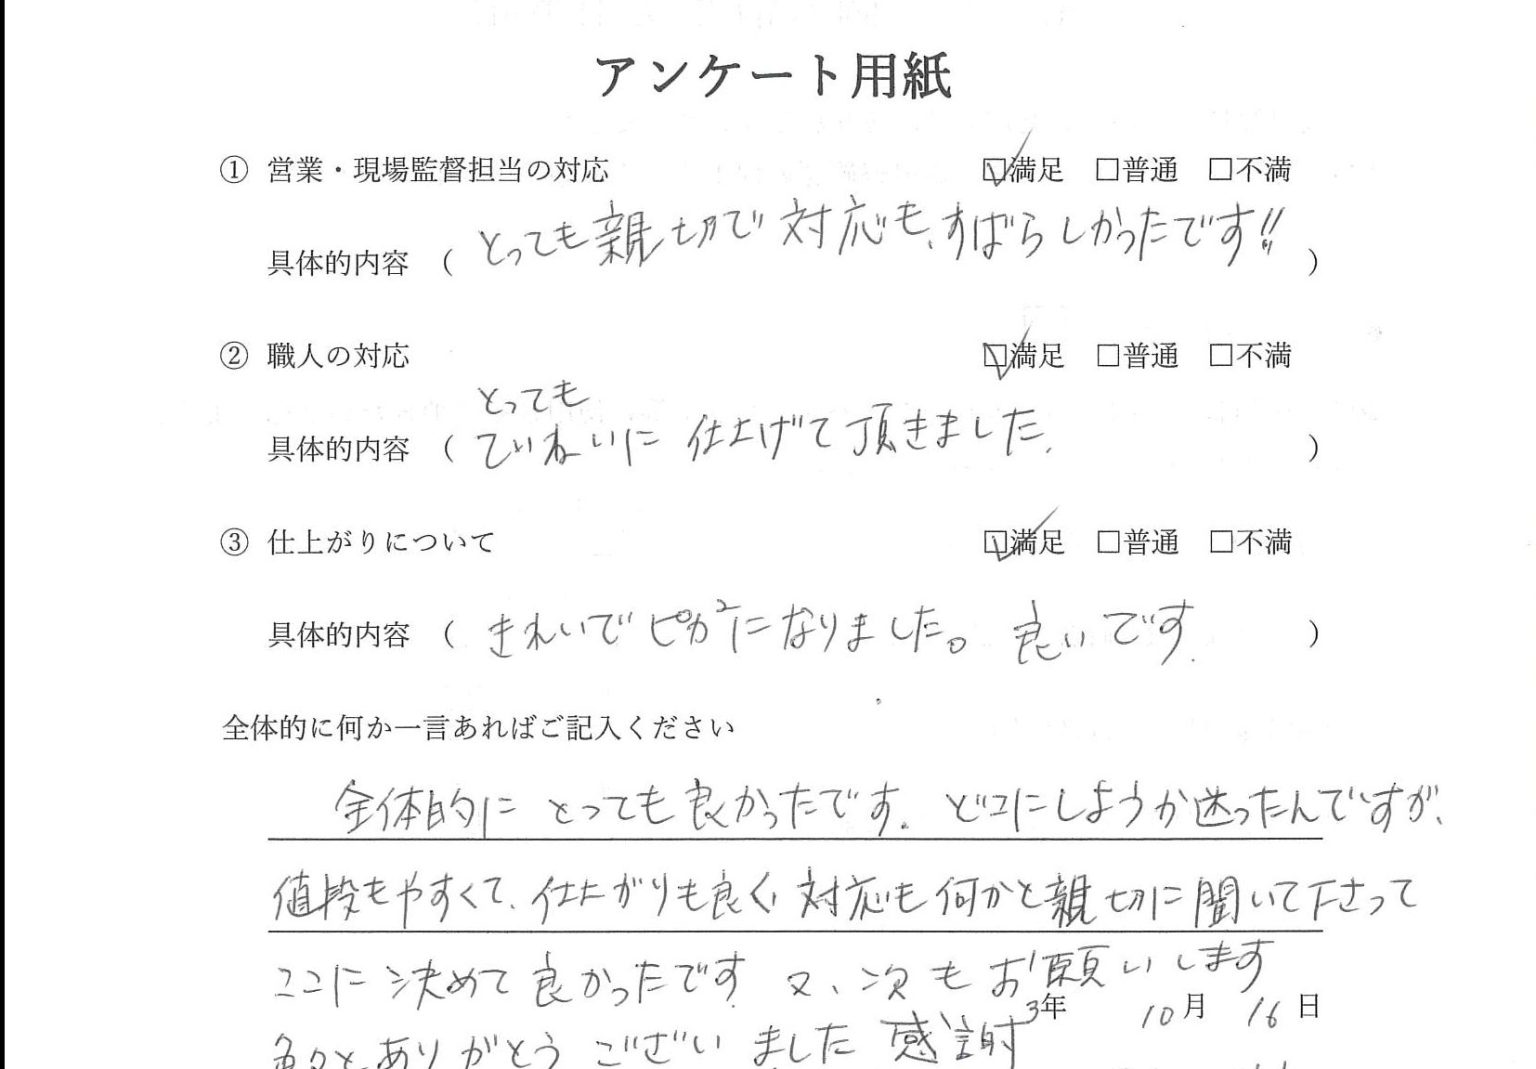 アンケート用紙
① 営業・現場監督担当の対応 ☑満足 □普通 □不満
具体的内容 ( とっても親切で対応も、すばらしかったです!! )
② 職人の対応 ☑満足 □普通 □不満
とっても
具体的内容 ( ていねいに 仕上げて頂きました. )
③ 仕上がりについて ☑満足 □普通 □不満
具体的内容 ( きれいでピカ²になりました。良いです. )
全体的に何か一言あればご記入ください
全体的に とっても良かったです. どコにしようか迷ったんですが、
値段もやすくて、仕上がりも良く、対応も何かと親切に聞いて下さって
ここに決めて良かったです. 又、次もお願いします
3年 10月 16日
色々とありがとうございました 感謝